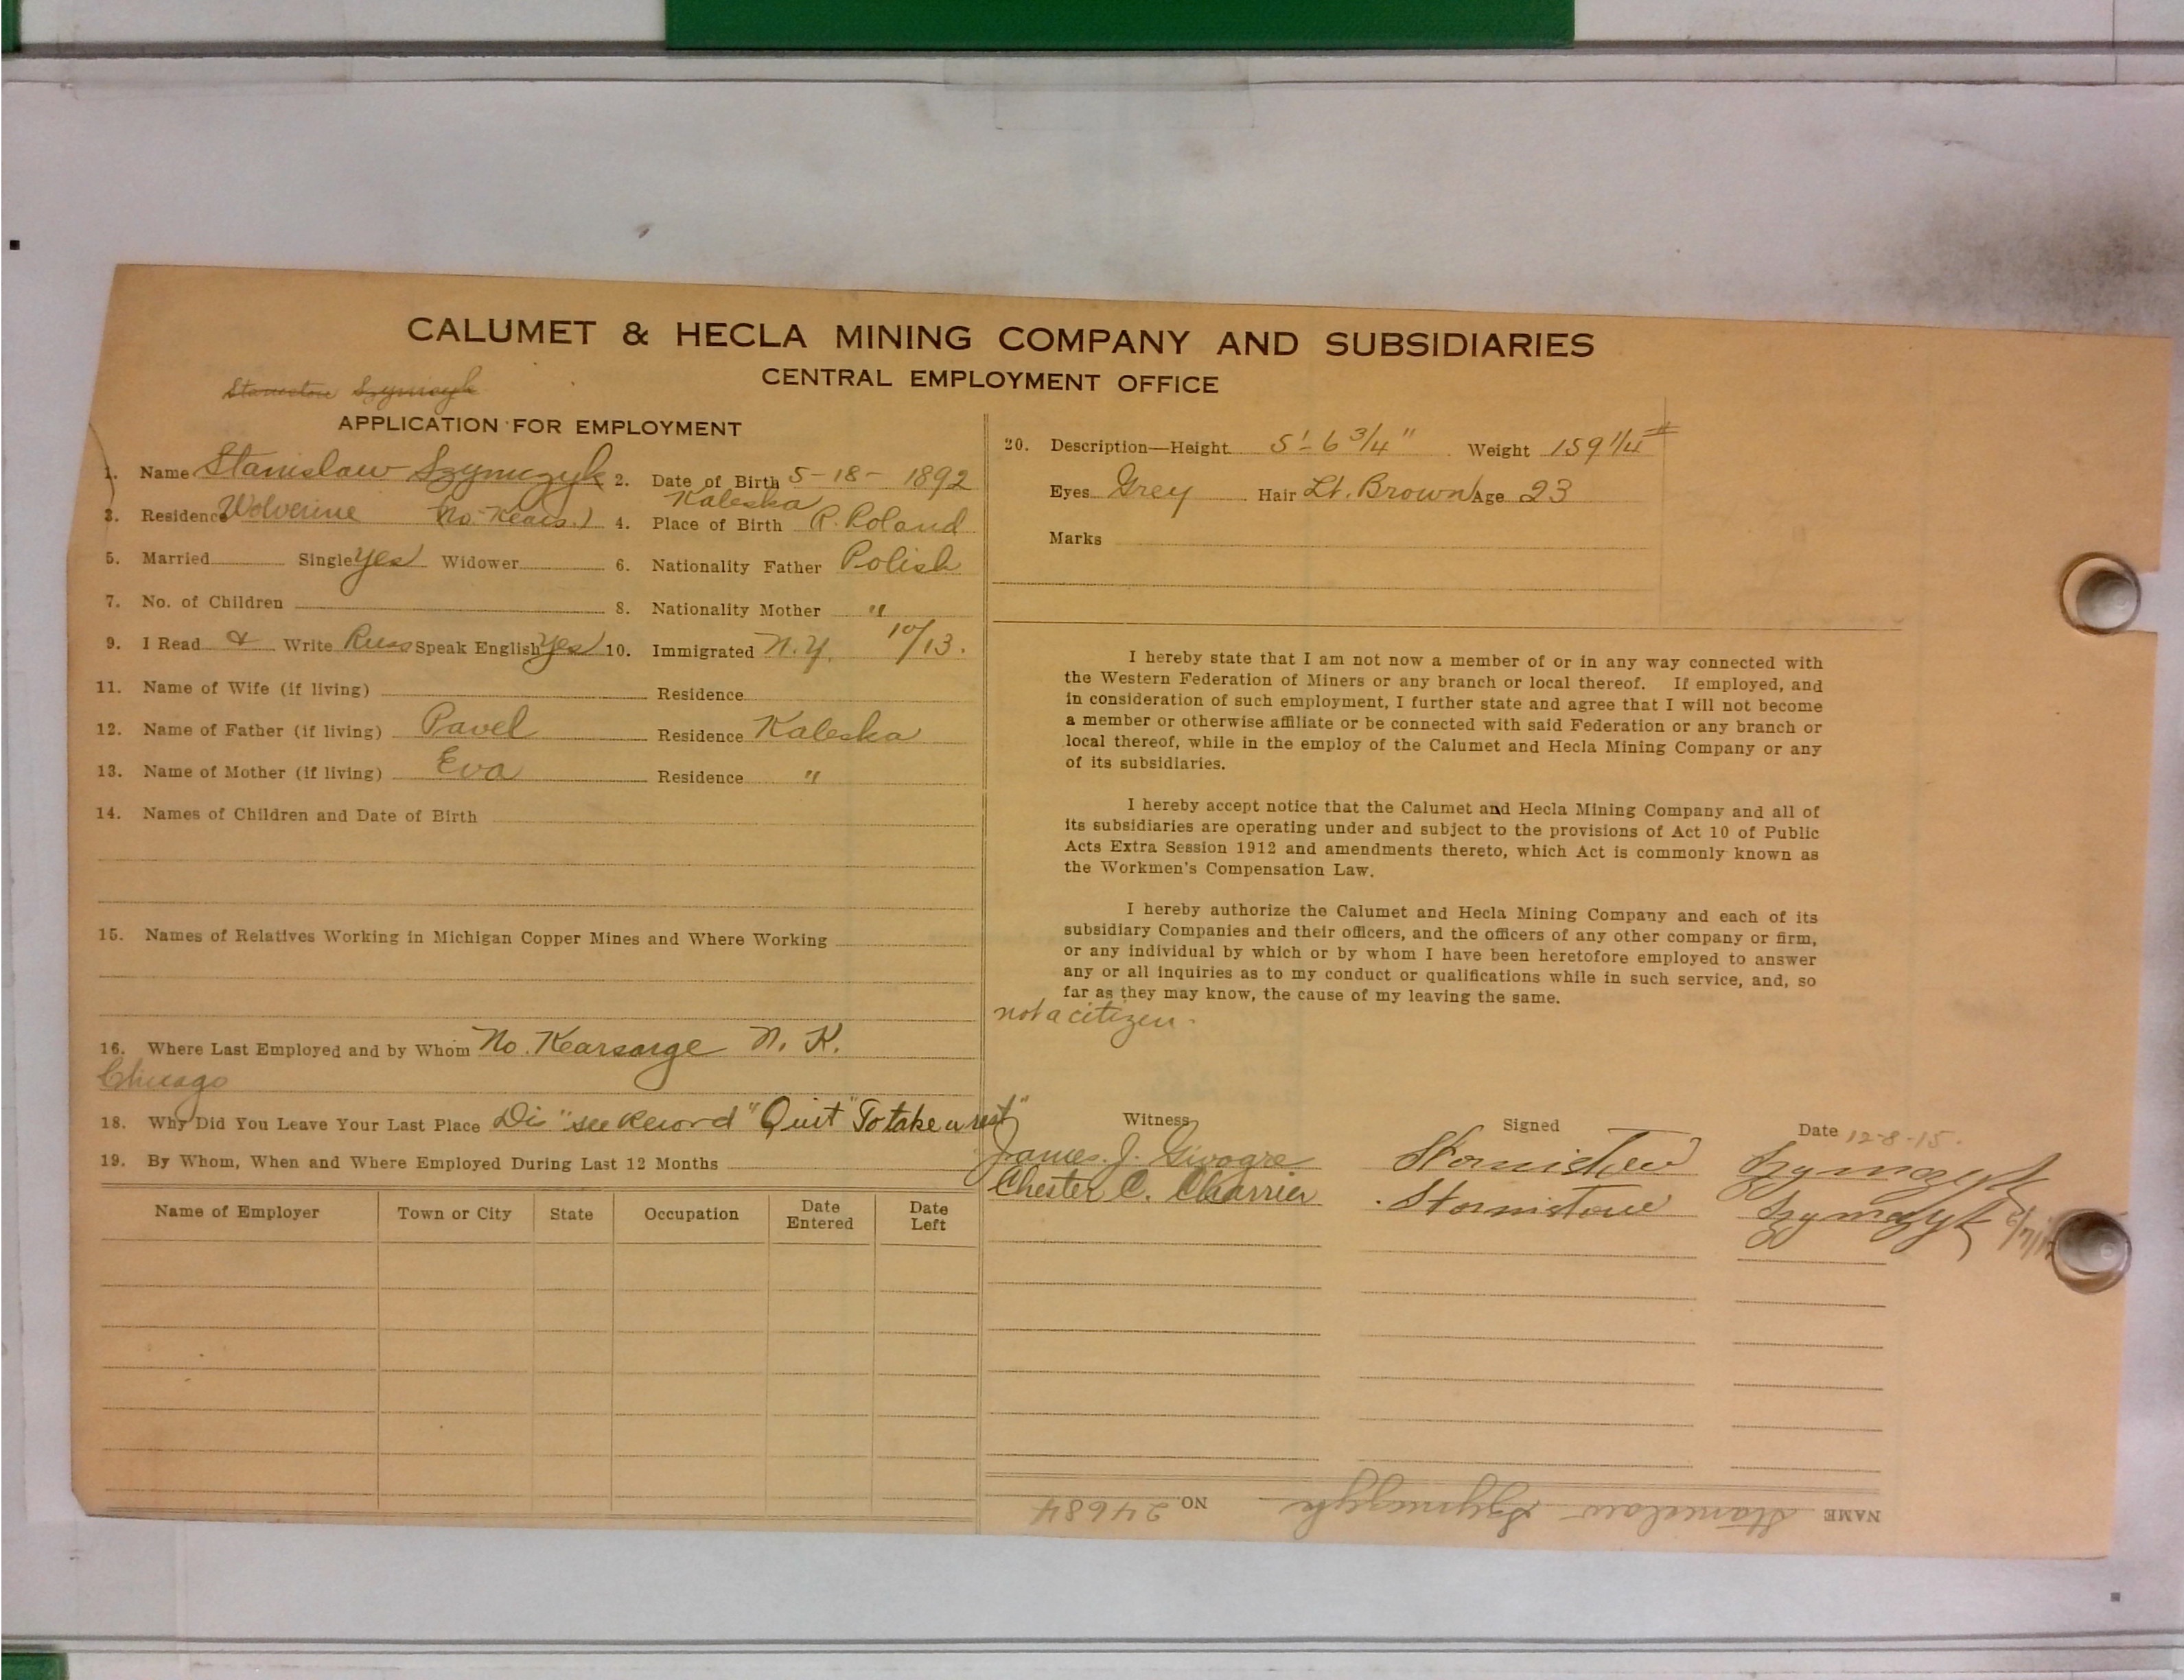 CALUMET & HECLA MINING COMPANY AND SUBSIDIARIES
CENTRAL EMPLOYMENT OFFICE
APPLICATION FOR EMPLOYMENT
1. Name Stanislaw Szymczyk 2. Date of Birth 5-18-1892
Kaleska
3. Residence Wolverine No. Kears.) 4. Place of Birth R. Poland
5. Married Single Yes Widower 6. Nationality Father Polish
7. No. of Children 8. Nationality Mother "
9. I Read & Write Russ Speak English Yes 10. Immigrated N.Y. 10/13.
11. Name of Wife (if living) Residence
12. Name of Father (if living) Pavel Residence Kaleska
13. Name of Mother (if living) Eva Residence "
14. Names of Children and Date of Birth
15. Names of Relatives Working in Michigan Copper Mines and Where Working
16. Where Last Employed and by Whom No. Kearsarge N. K.
Chicago
18. Why Did You Leave Your Last Place Dis "see Record" Quit "To take a rest"
19. By Whom, When and Where Employed During Last 12 Months
Name of Employer Town or City State Occupation Date Entered Date Left
20. Description—Height 5'-6 3/4" Weight 159 1/4 #
Eyes Grey Hair Lt. Brown Age 23
Marks
I hereby state that I am not now a member of or in any way connected with
the Western Federation of Miners or any branch or local thereof. If employed, and
in consideration of such employment, I further state and agree that I will not become
a member or otherwise affiliate or be connected with said Federation or any branch or
local thereof, while in the employ of the Calumet and Hecla Mining Company or any
of its subsidiaries.
I hereby accept notice that the Calumet and Hecla Mining Company and all of
its subsidiaries are operating under and subject to the provisions of Act 10 of Public
Acts Extra Session 1912 and amendments thereto, which Act is commonly known as
the Workmen's Compensation Law.
I hereby authorize the Calumet and Hecla Mining Company and each of its
subsidiary Companies and their officers, and the officers of any other company or firm,
or any individual by which or by whom I have been heretofore employed to answer
any or all inquiries as to my conduct or qualifications while in such service, and, so
far as they may know, the cause of my leaving the same.
not a citizen.
Witness Signed Date 12-8-15.
James. J.
Chester C. Charrier
NAME Stanislaw Szymczyk NO. 24684